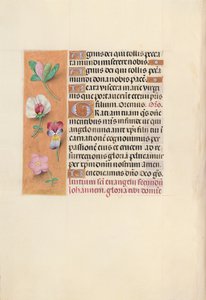 Agnus dei qui tollis pecca
ta mundi miserere nobis
Agnus dei qui tollis pecca
ta mundi dona nobis pacem
Beata viscera marie virgi
nis que portaverunt eterni patris
filium. Oremus. Oro.
Gratiam tuam qs dne
mentibus nris infunde ut qui
angelo nunciante xpi filii tui in
carnationem cognovimus per
passionē eius et crucem ad re
surrectionis gloriā perducamur
per eundem
Benedicamus dno Deo grs
Initium sci evangelii secundū
Johannem. gloria tibi domine